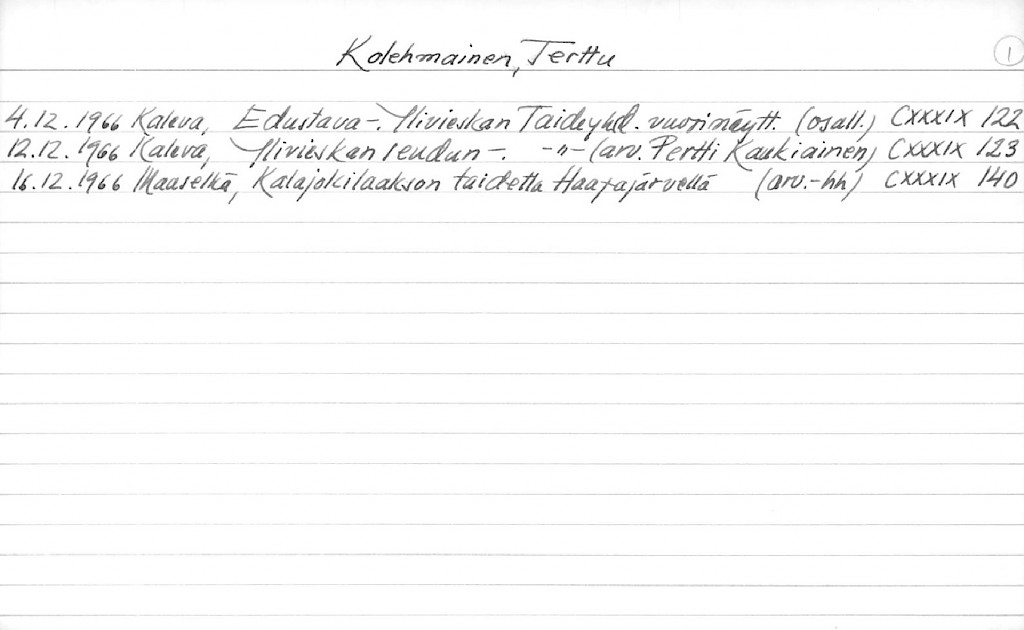 Kolehmainen, Terttu 1
4.12.1966 Kaleva, Edustava-. Ylivieskan Taideyhd. vuosinäytt. (osall.) CXXXIX 122
12.12.1966 Kaleva, Ylivieskan seudun-. -"- (arv. Pertti Kaukiainen) CXXXIX 123
16.12.1966 Maaselkä, Kalajokilaakson taidetta Haapajärvellä (arv.-hh) CXXXIX 140